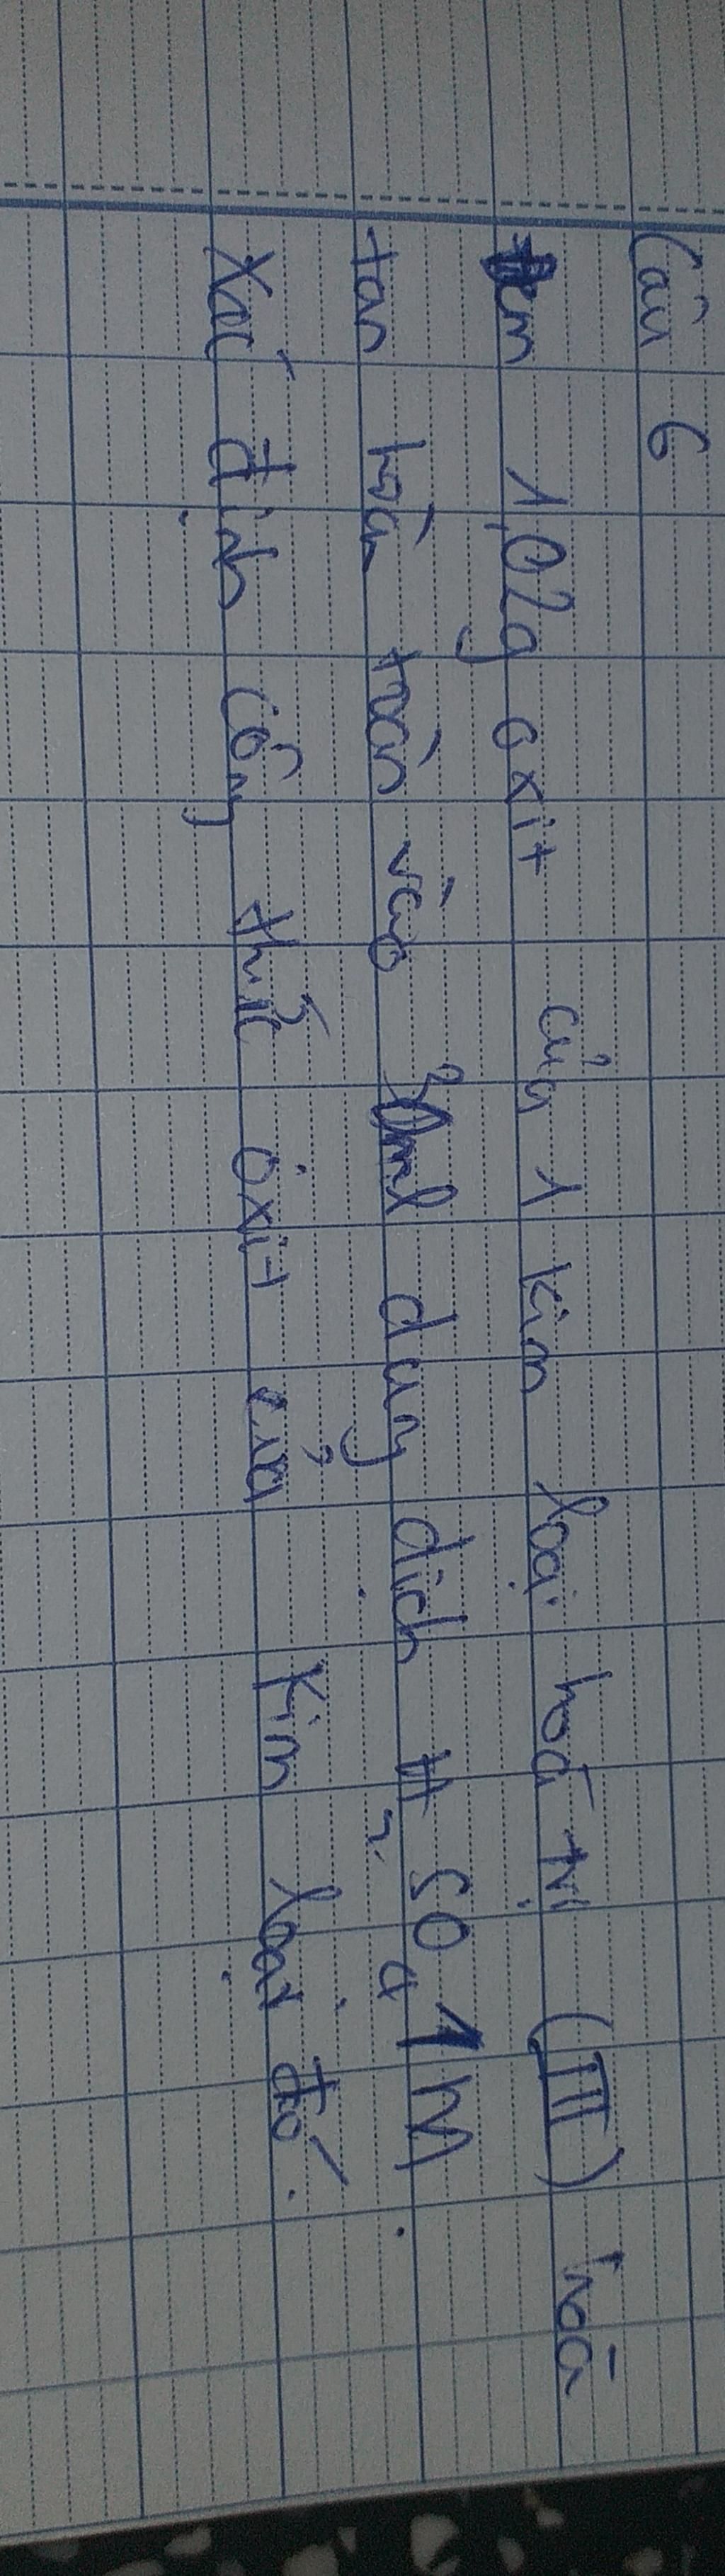 Câu 6
Đem 1,02g oxit của 1 kim loại hoá trị (III) hoà
tan hoàn toàn vào ml dung dịch H2SO4 1M.
Xác định công thức oxit của kim loại đó.